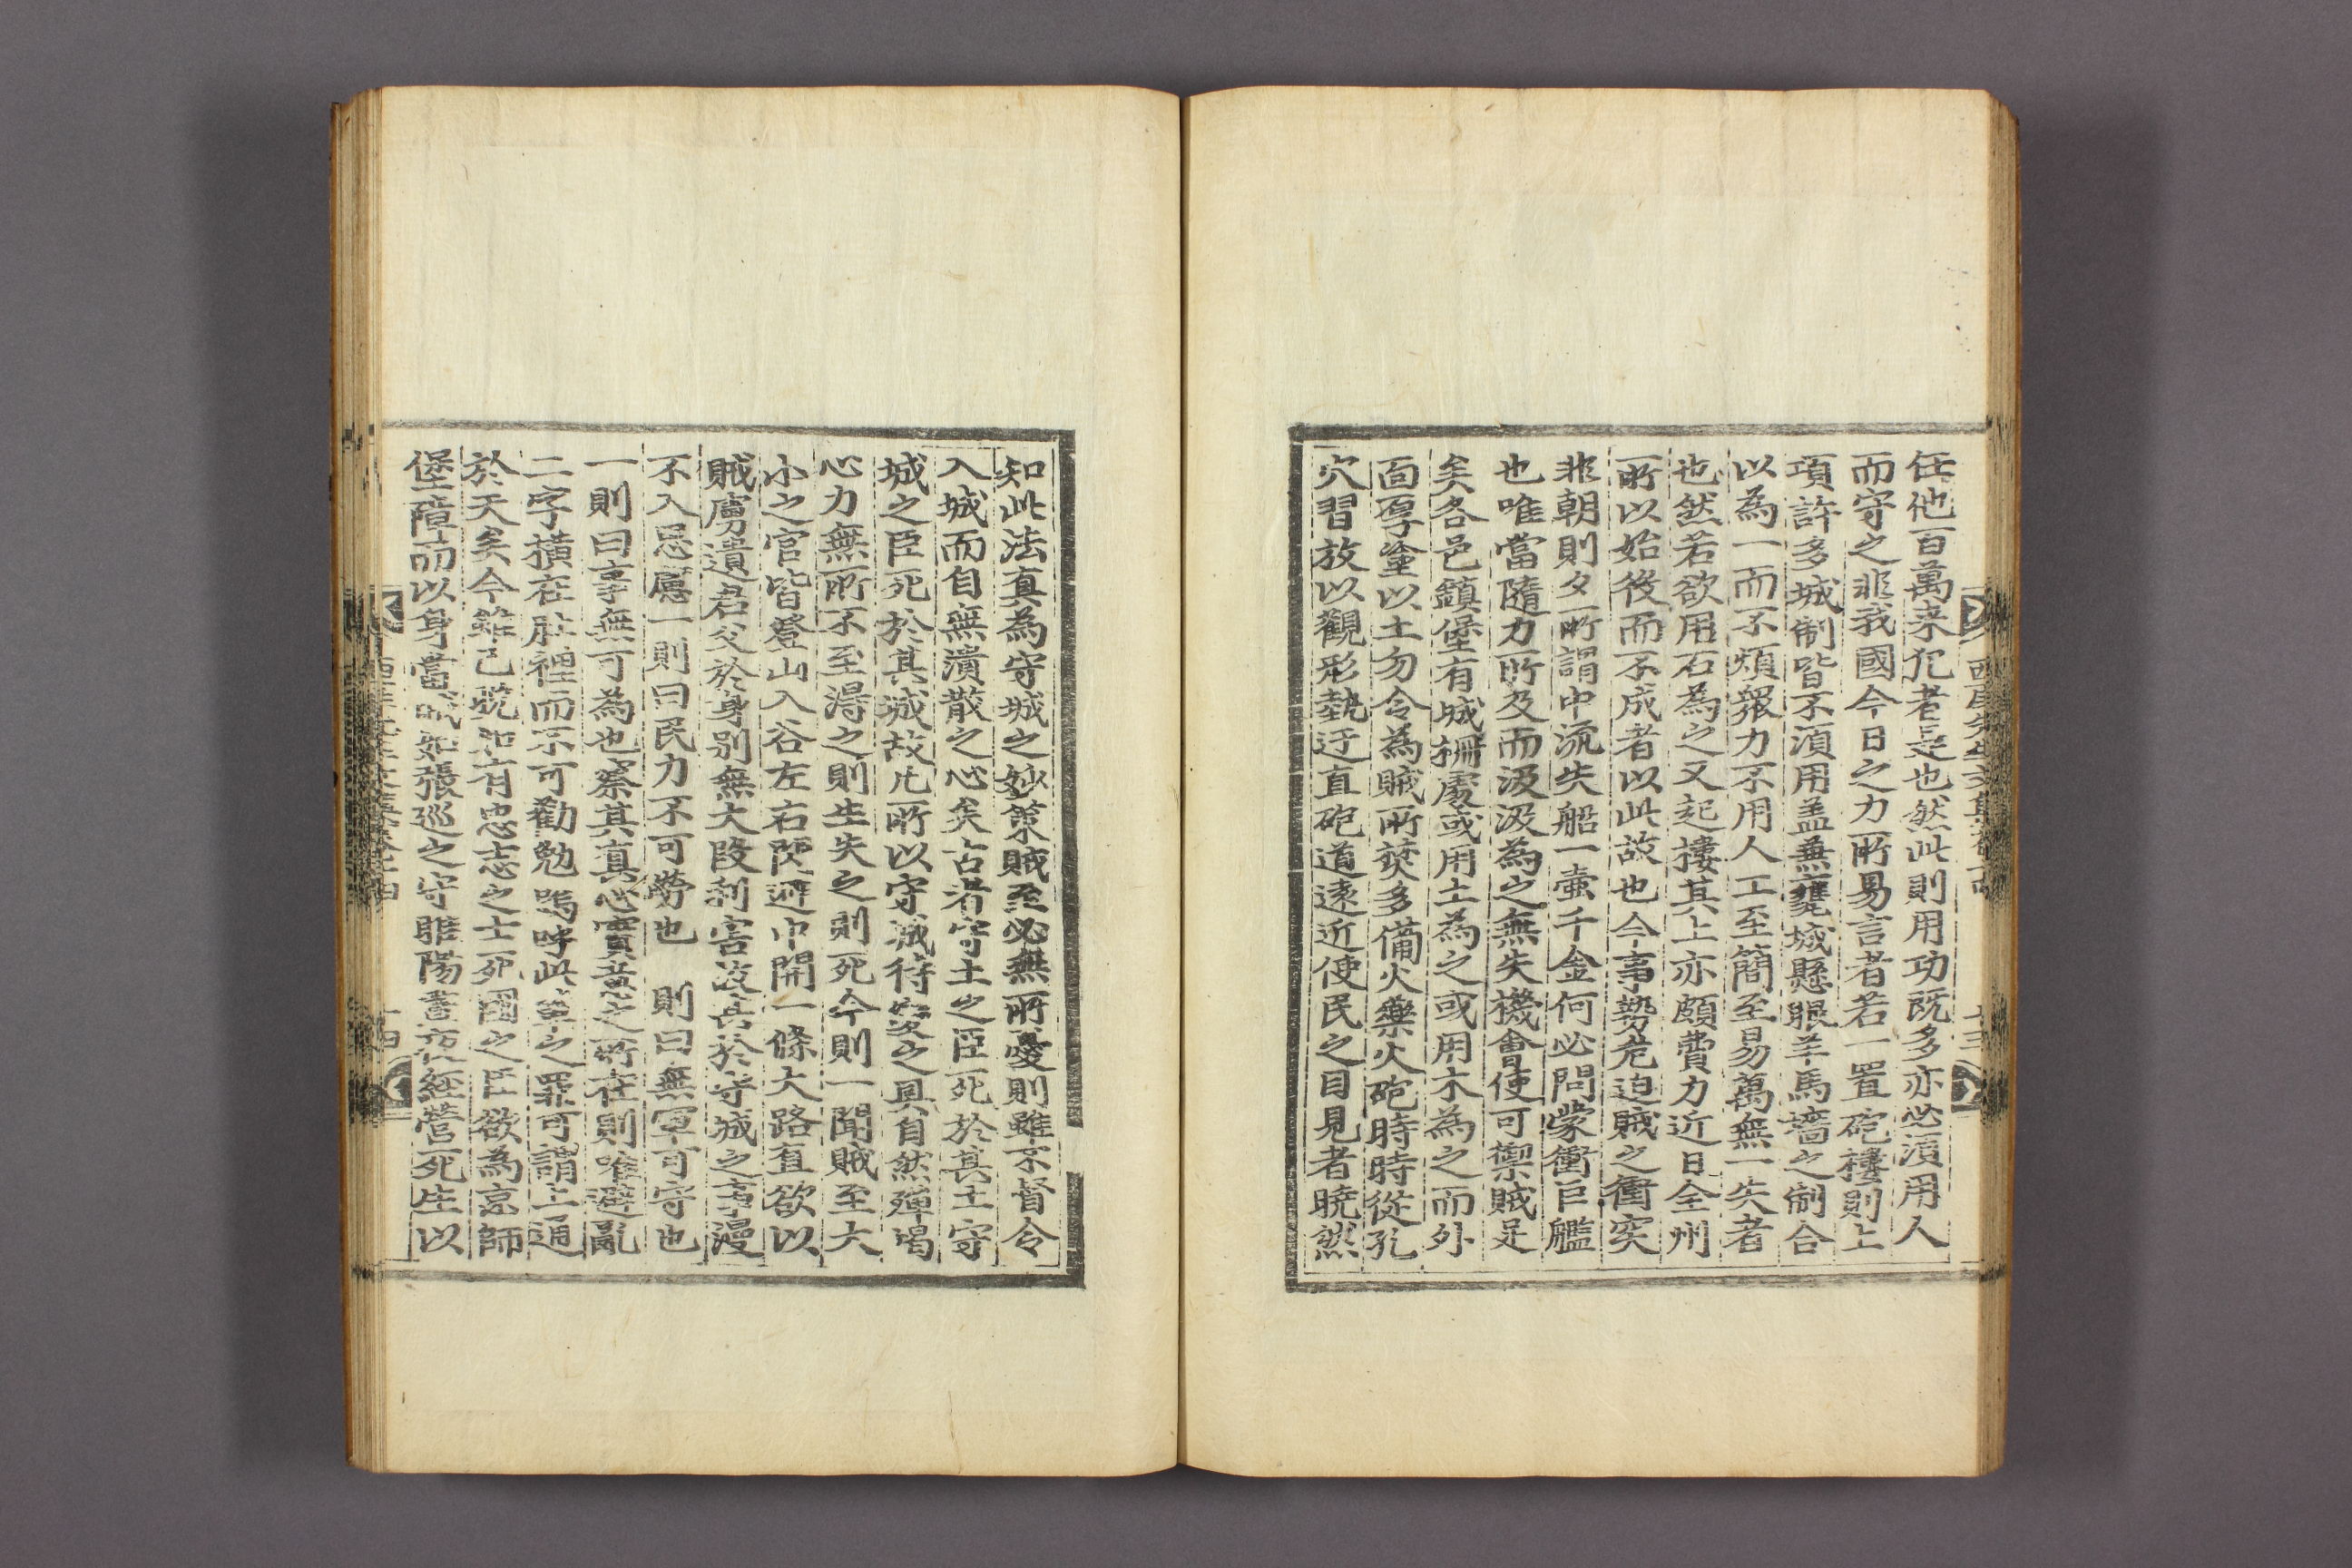 任他百萬来犯者是也然此則用功既多亦必湏用人
而守之非我國今日之力所易言者若一置砲樓則上
項許多城制皆不湏用盖兼甕城懸眼羊馬墻之制合
以為一而不煩衆力不用人工至簡至易萬無一失者
也然若欲用石為之又起樓其上亦頗費力近日全州
所以始役而不成者以此故也今事勢危迫賊之衝突
非朝則夕所謂中流失船一壷千金何必問蒙衝巨艦
也唯當隨力所及而汲汲為之無失機會使可禦賊足
矣各邑鎮堡有城柵處或用土為之或用木為之而外
面厚塗以土勿令為賊所焚多備火藥火砲時時從孔
穴習放以觀形勢迂直砲道遠近使民之目見者曉然
西厓先生文集卷十四
十三
知此法真為守城之妙策賊至必無所憂則雖不督令
入城而自無潰散之心矣古者守土之臣死於其土守
城之臣死於其城故凡所以守城待變之具自然殫竭
心力無所不至得之則生失之則死今則一聞賊至大
小之官皆登山入谷左右閃避中開一條大路直欲以
賊虜遺君父於身别無大段利害故其於守城之事漫
不入思慮一則曰民力不可勞也 則曰無軍可守也
一則曰事無可為也察其真心實責之所在則唯避亂
二字横在肚裡而不可勸勉嗚呼此輩之罪可謂上通
於天矣今雖已晩如有忠志之士死國之臣欲為京師
堡障而以身當賊如張巡之守睢陽晝夜經營死生以
西厓先生文集卷十四
十四